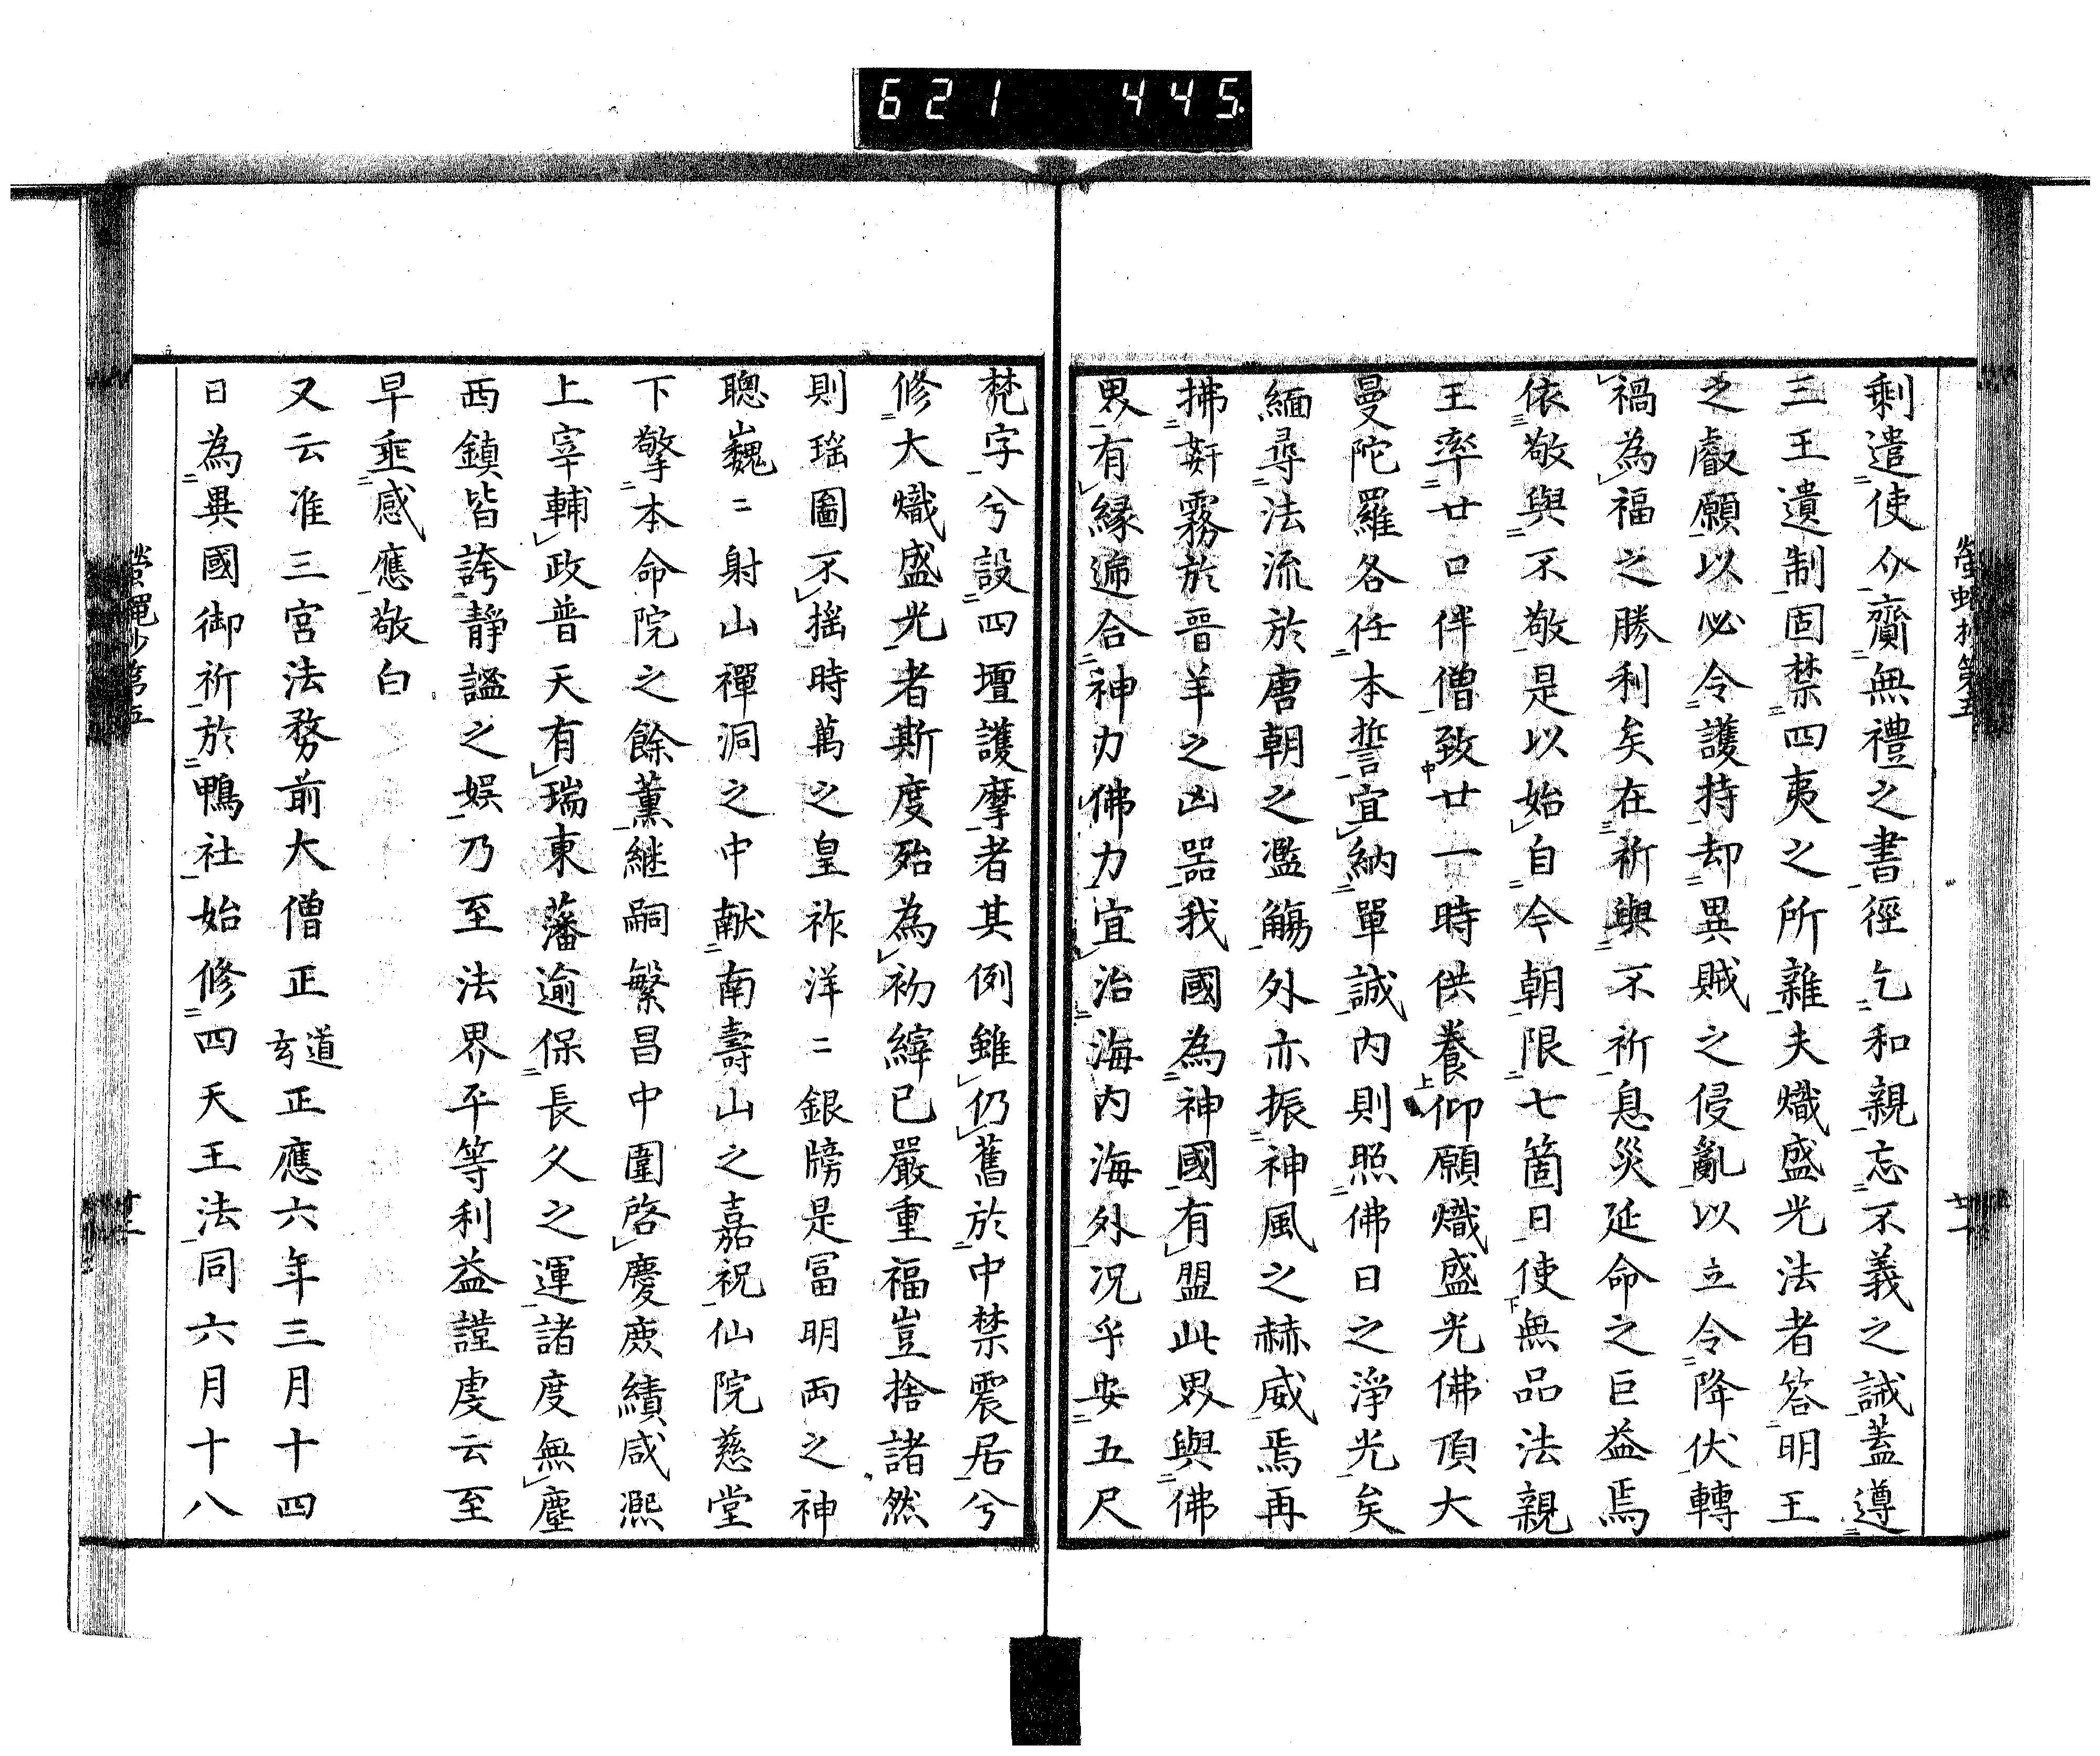 621 445
螢蠅抄第五
廿一
剩遣使介齎無禮之書徑乞和親忘不義之誠蓋遵
三王遺制固禁四夷之所雜夫熾盛光法者答明王
之叡願以必令護持却異賊之侵亂以立令降伏轉
禍為福之勝利矣在祈與不祈息災延命之巨益焉
依敬與不敬是以始自今朝限七箇日使無品法親
王率廿口伴僧致廿一時供養仰願熾盛光佛頂大
曼陀羅各任本誓宜納單誠內則照佛日之淨光矣
緬尋法流於唐朝之濫觴外亦振神風之赫威焉再
拂姧霧於晉羊之凶噐我國為神國有盟此界與佛
界有緣遞合神力佛力宜治海內海外況乎安五尺
梵字兮設四壇護摩者其例雖仍舊於中禁震居兮
修大熾盛光者斯度殆為初縡已嚴重福豈捨諸然
則瑶圖不搖時萬之皇祚洋〻銀牓是冨明兩之神
聰巍〻射山禪洞之中献南壽山之嘉祝仙院慈堂
下擎本命院之餘薰継嗣繁昌中圍啓慶庶績咸凞
上宰輔政普天有瑞東藩逾保長久之運諸度無塵
西鎮皆誇靜謐之娯乃至法界平等利益謹虔云至
早垂感應敬白
又云准三宮法務前大僧正道玄正應六年三月十四
日為異國御祈於鴨社始修四天王法同六月十八
螢蠅抄第五